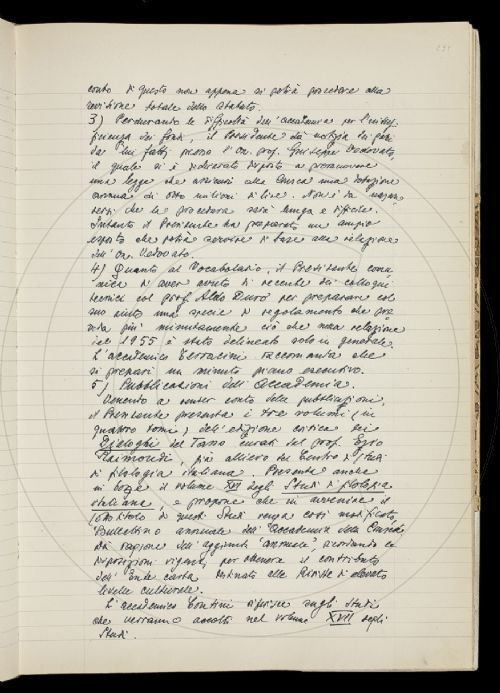 conto di questo non appena si potrà procedere alla
revisione totale dello statuto.
3) Perdurando le difficoltà dell'accademia per l'insuf-
ficienza dei fondi, il Presidente dà notizia dei passi
da lui fatti presso l'on. prof. Giuseppe Vedovato,
il quale si è dichiarato disposto a promuovere
una legge che assicuri alla Crusca una dotazione
annua di otto milioni di lire. Non è da nascon-
dersi che la procedura sarà lunga e difficile.
Intanto il Presidente ha preparato un ampio
esposto che potrà servire di base alla relazione
dell'on. Vedovato.
4) Quanto al Vocabolario, il Presidente comu-
nica di aver avuto di recente dei colloqui
tecnici col prof. Aldo Duro per preparare col
suo aiuto una specie di regolamento che pre-
veda più minutamente ciò che nella relazione
del 1955 è stato delineato solo in generale.
L'accademico Terracini raccomanda che
si prepari un minuto piano esecutivo.
5) Pubblicazioni dell'Accademia.
Venendo a render conto delle pubblicazioni,
il Presidente presenta i tre volumi, in
quattro tomi, dell'edizione critica dei
Dialoghi del Tasso curati dal prof. Ezio
Raimondi, già allievo del Centro di studi
di filologia italiana. Presenta anche
in bozze il volume XVI degli Studi di filologia
italiana, e propone che in avvenire il
sottotitolo di questi Studi venga così modificato:
Bullettino annuale dell'Accademia della Crusca
Dà ragione dell'aggiunta "annuale", ricordando le
disposizioni vigenti, per ottenere il contributo
dell'Ente carta destinato alle riviste di elevato
livello culturale.
L'accademico Contini riferisce sugli studi
che verranno accolti nel volume XVII degli
Studi.